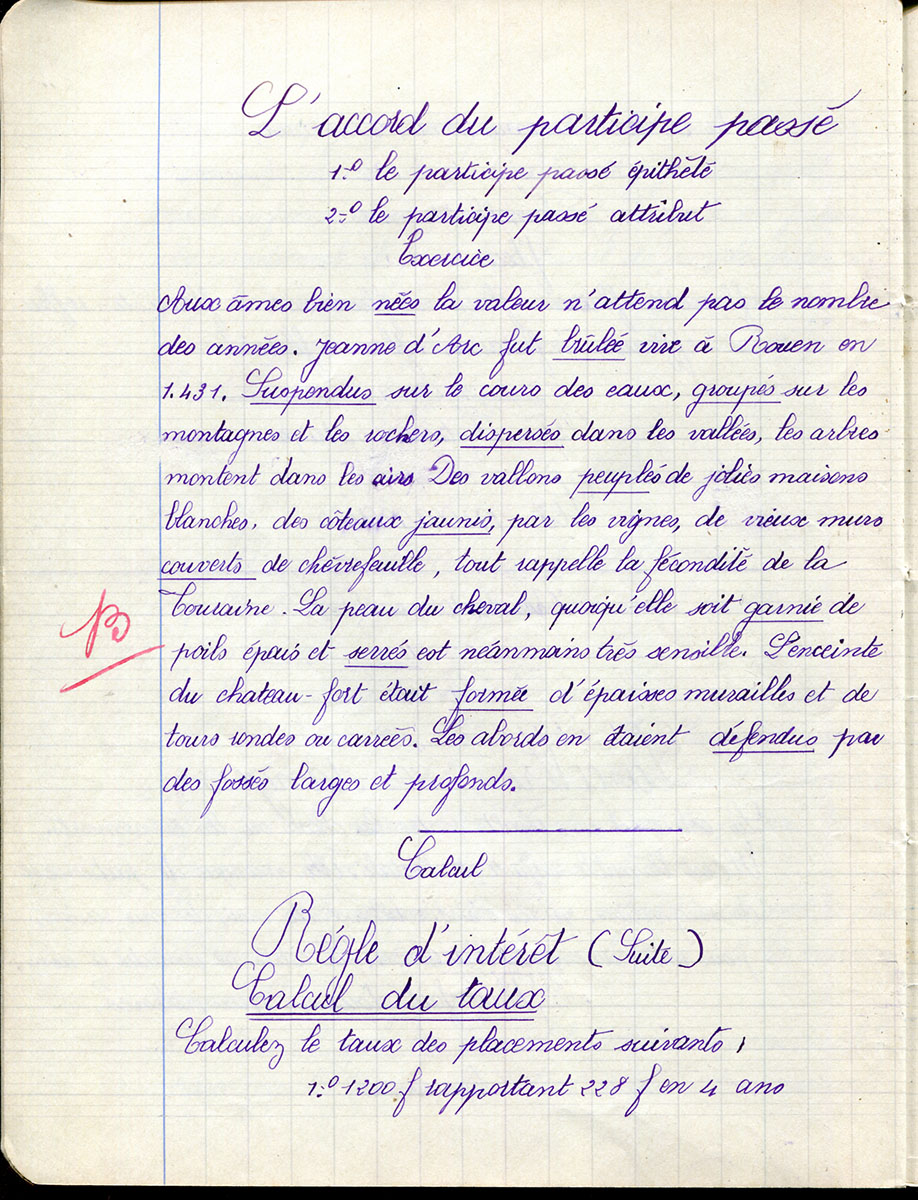 L'accord du participe passé
1.º le participe passé épithète
2.º le participe passé attribut
Exercice
Aux âmes bien nées la valeur n'attend pas le nombre
des années. Jeanne d'Arc fut brûlée vive à Rouen en
1.431. Suspendus sur le cours des eaux, groupés sur les
montagnes et les rochers, dispersés dans les vallées, les arbres
montent dans les airs Des vallons peuplés de jolies maisons
blanches, des côteaux jaunis, par les vignes, de vieux murs
couverts de chèvrefeuille, tout rappelle la fécondité de la
Touraine. La peau du cheval, quoiqu'elle soit garnie de
poils épais et serrés est néanmains très sensible. L'enceinte
du chateau-fort était formée d'épaisses murailles et de
tours rondes ou carrées. Les abords en étaient défendus par
des fossés larges et profonds.
B
Calcul
Régle d'intérêt (Suite)
Calcul du taux
Calculez le taux des placements suivants,
1.º 1200 f rapportant 228 f en 4 ans